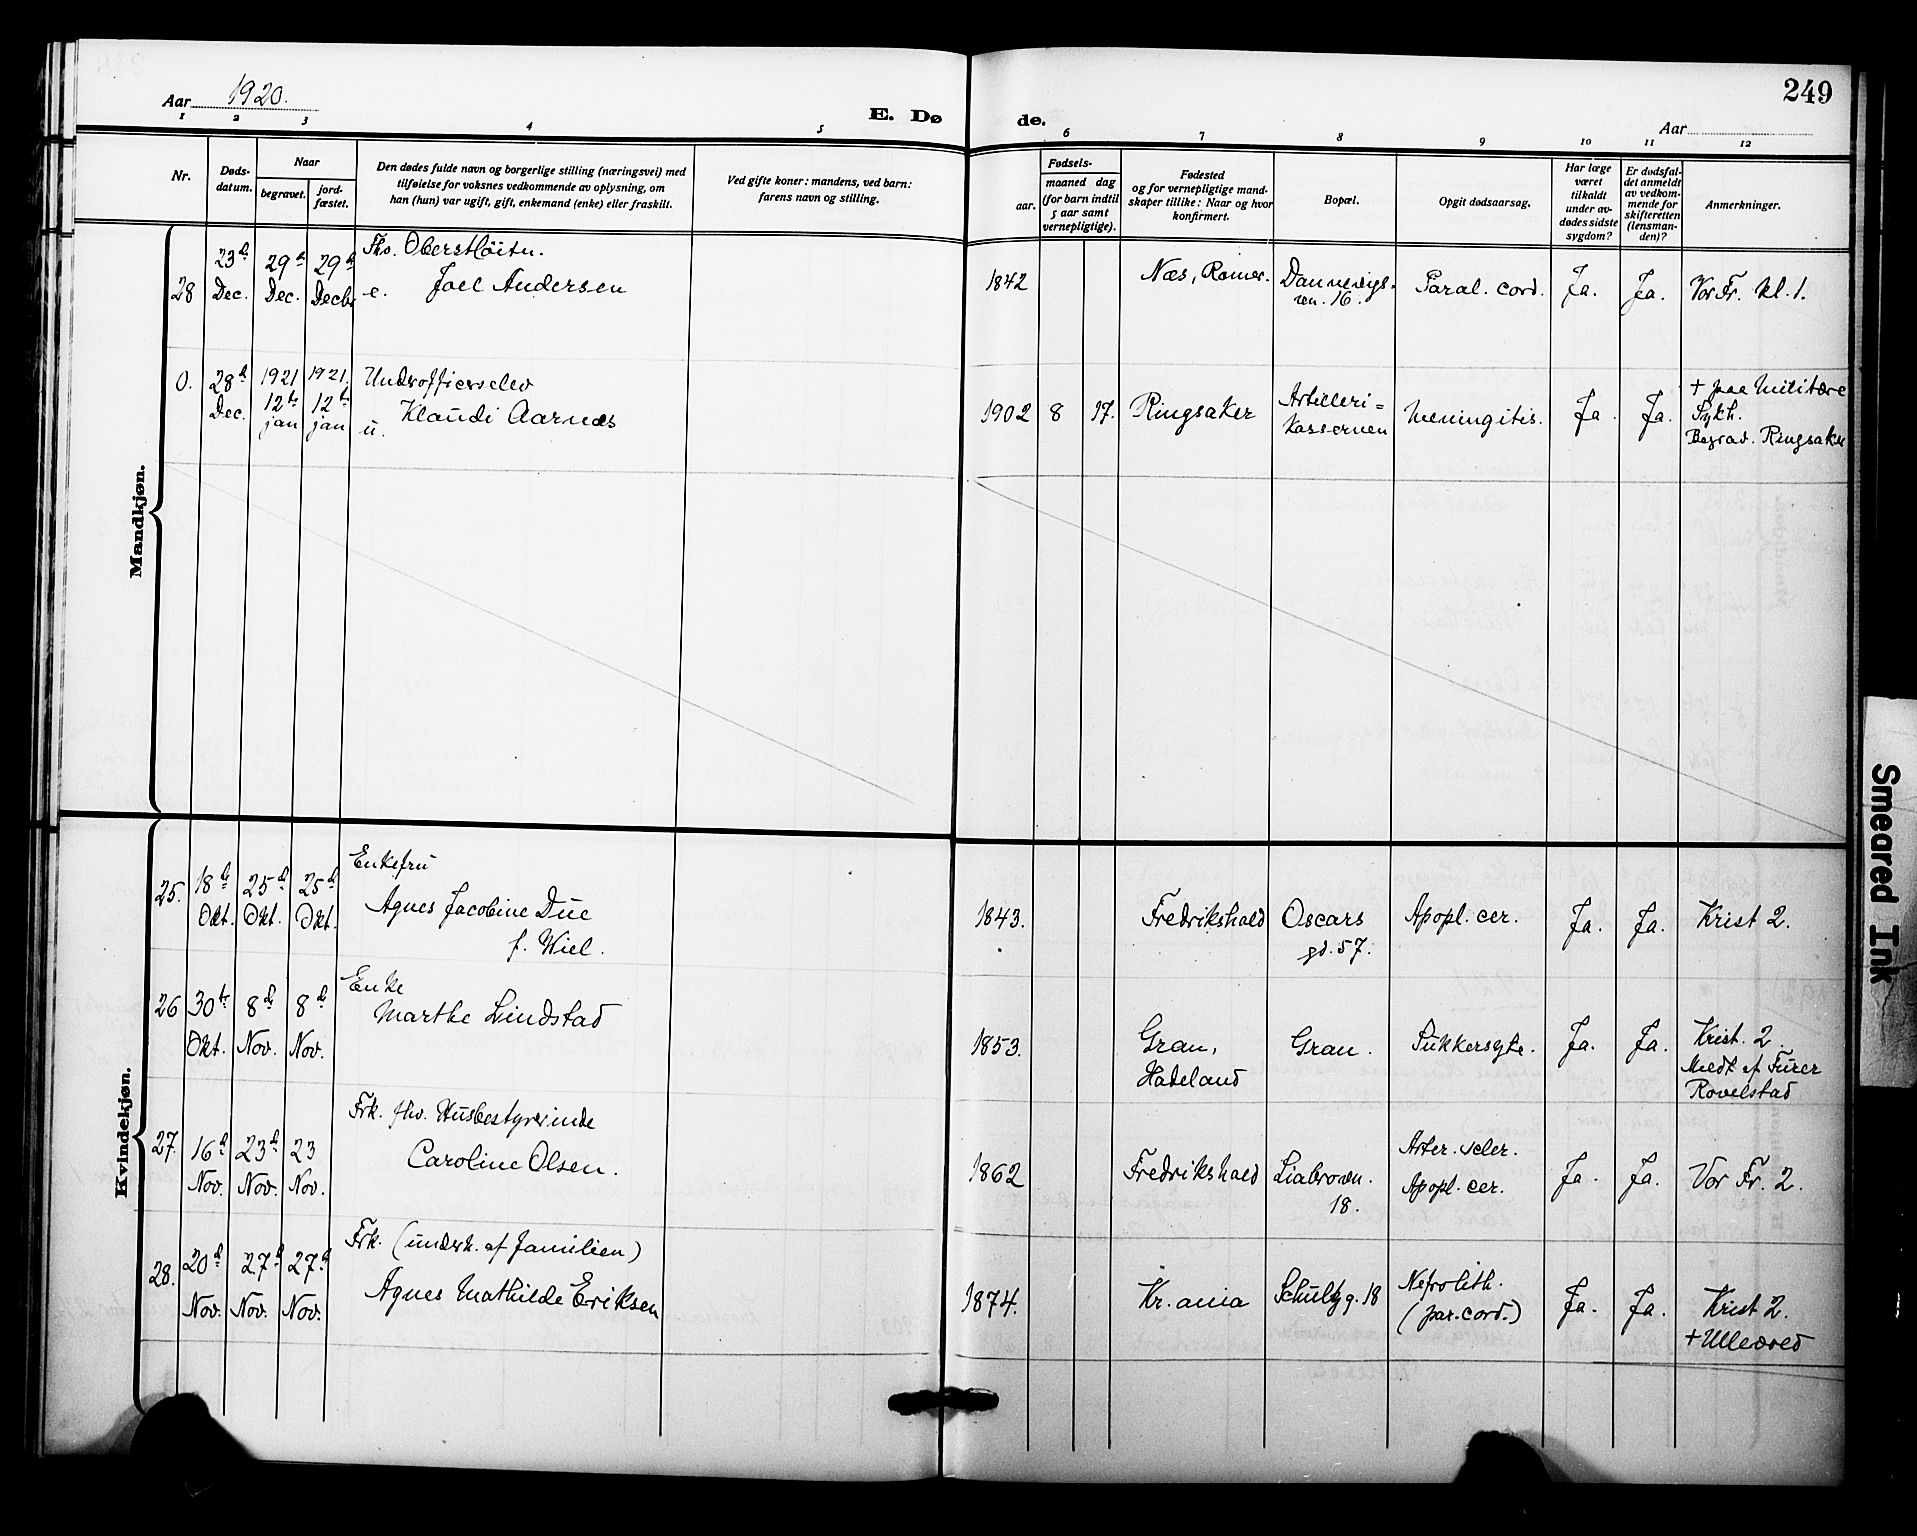 Aar 1920.
E. Dø
de.
249
Aar
1 2 3 4 5 6 7 8 9 10 11 12
Nr.
Døds-
datum.
Naar
begravet.
jord-
fæstet.
Den dødes fulde navn og borgerlige stilling (næringsvei) med
tilføielse for voksnes vedkommende av oplysning, om
han (hun) var ugift, gift, enkemand (enke) eller fraskilt.
Ved gifte koner: mandens, ved barn:
farens navn og stilling.
Fødsels-
aar.
maaned dag
(for barn indtil
5 aar samt
vernepligtige).
Fødested
og for vernepligtige mand-
skaper tillike: Naar og hvor
konfirmert.
Bopæl.
Opgit dødsaarsag.
Har læge
været
tilkaldt
under av-
dødes sidste
sygdom?
Er dødsfal-
det anmeldt
av vedkom-
mende for
skifteretten
(lensman-
den)?
Anmerkninger.
Mandkjøn.
28
23d
Dec.
29d
Dec.
29d
Decbr
Fhv. Oberstløitn.
e. Joel Andersen
1842
Næs, Romer.
Dannevigs-
vn. 16.
Paral. cord.
Ja.
Ja.
Vor Fr. kl. 1.
0.
28d
Dec.
1921
12te
jan
1921.
12te
jan
Underofficerselev
u. Klaudi Aarnæs
1902 8 17.
Ringsaker
Artilleri=
kassernen
Meningitis.
Ja.
Ja.
+ paa Militære
Sykh.
Begrav. Ringsaker
Kvindekjøn.
25.
18de
Okt.
25d
Okt.
25d
Okt.
Enkefru
Agnes Jacobine Due
f. Wiel.
1843.
Fredrikshald
Oscars
gd. 57.
Apopl. cer.
Ja.
Ja.
Krist 2.
26
30te
Okt.
8d
Nov.
8d
Nov.
Enke
Marthe Lindstad
1853.
Gran,
Hadeland
Gran.
Sukkersyke.
Ja.
Ja.
Krist. 2
Medt af Furer
Rovelstad
27.
16d
Nov.
23d
Nov.
23
Nov.
Frk. fhv. Husbestyrerinde
Caroline Olsen.
1862
Fredrikshald
Liabrovn.
18.
Arter. scler.
Apopl. cer.
Ja.
Ja.
Vor Fr. 2.
28.
20d
Nov.
27d
Nov.
27d
Nov.
Frk. (underh. af familien)
Agnes Mathilde Eriksen
1874.
Kr.ania
Schultzg. 18
Nefrolith.
(par. cord.)
Ja.
Ja.
Krist 2.
+ Ullevaal
Smeared Ink